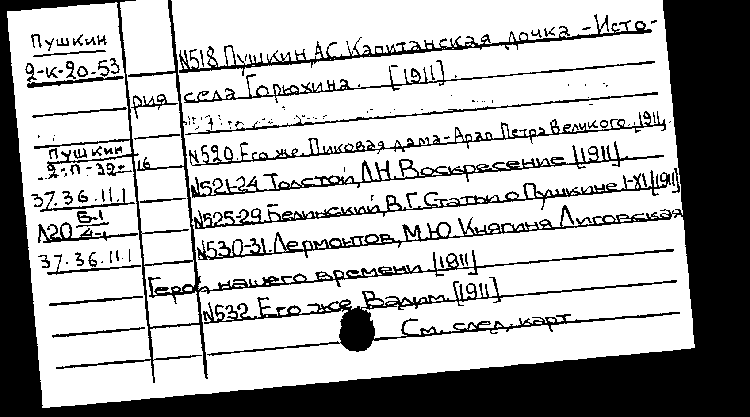 Пушкин
2-к-20-53
N518. Пушкин, А.С. Капитанская дочка - Исто-
рия села Горюхина. [1911].
Пушкин
2-П-32-16
N520. Его же. Пиковая дама - Арап Петра Великого. 1911.
37.36.11.1
N521-24. Толстой, Л.Н. Воскресение [1911].
Л20
N525-29. Белинский, В.Г. Статьи о Пушкине I-XI [1911]
37.36.11.1
N530-31. Лермонтов, М.Ю. Княгиня Лиговская
Герой нашего времени [1911]
N532. Его же. Вадим [1911]
См. след. карт.